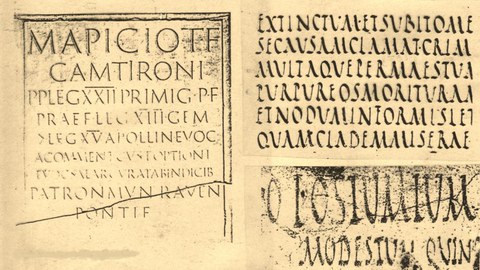 MAPICIOTF
CAMTIRONI
PPLEGXXII PRIMIG·PF
PRAEFLEG XIII GEM
>LEGXVAPOLLINEVOC
ACOMMENTCVSTOPTIONI
EVOCSALARCVRATABINDICIB
PATRONMVN RAVEN
PONTIF
EXTINCTUM·ETSUBITOME
SECAUSAMCLAMATCRIM
MULTAQUEPERMAESTUM
PURPUREOSMORITURAM
ETNODUMINFORMISLET
QUAMCLADEMMISERAE
POSTUMIUM
MODESTUM QUINQ